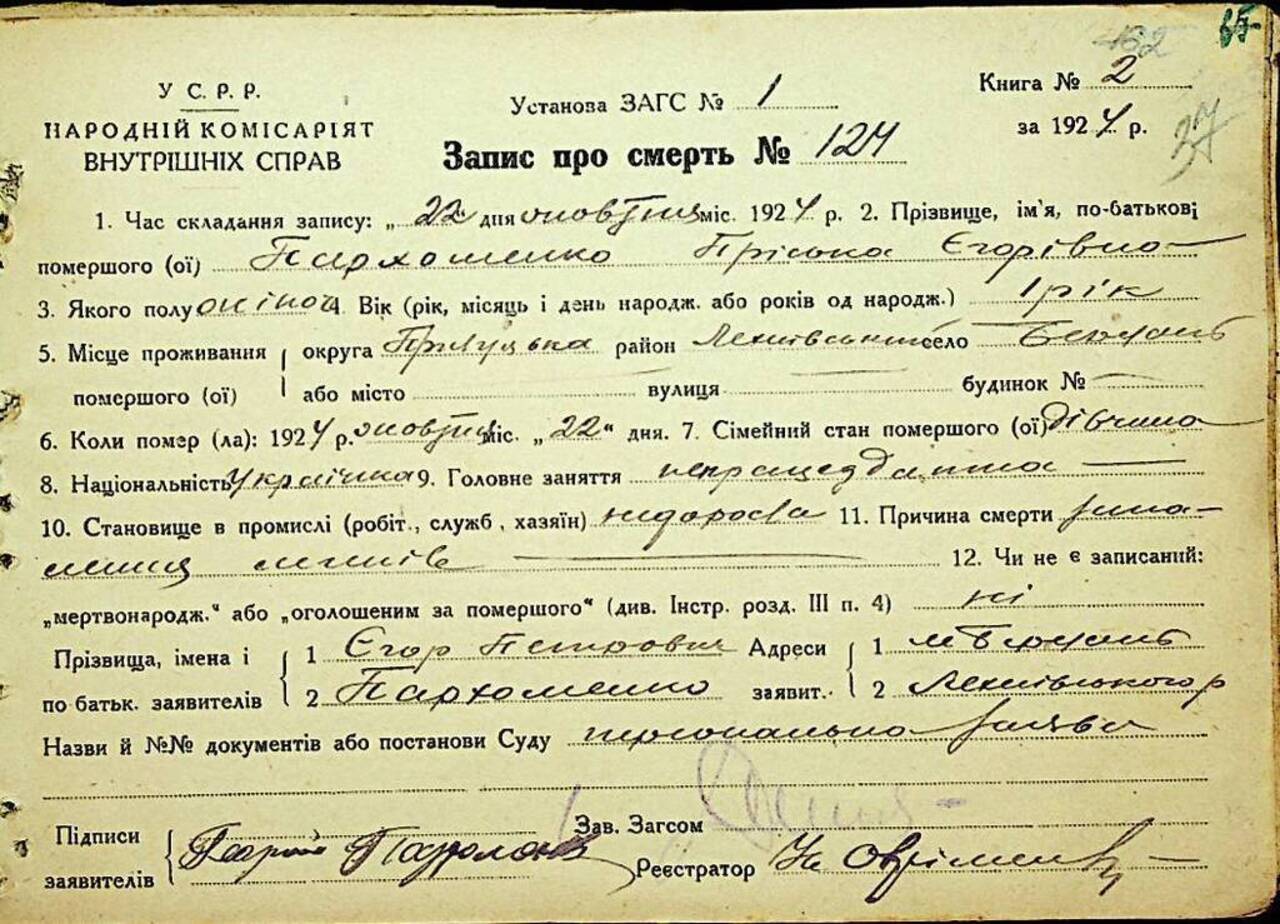 162
У С. Р. Р.
НАРОДНІЙ КОМІСАРІЯТ
ВНУТРІШНІХ СПРАВ
Установа ЗАГС № 1
Книга № 2
за 1924 р.
37
Запис про смерть № 124
1. Час складання запису: „ 22 дня жовтня міс. 1924 р. 2. Прізвище, ім'я, по-батькові
помершого (ої) Пархоменко Пріська Єгорівна
3. Якого полу жіноч 4. Вік (рік, місяць і день народж. або років од народж.) 1 рік
5. Місце проживання округа Прилуцька район село
помершого (ої) або місто вулиця будинок №
6. Коли помер (ла): 1924 р. жовтня міс. „22“ дня. 7. Сімейний стан помершого (ої) дівчина
8. Національність Українка 9. Головне заняття
10. Становище в промислі (робіт., служб, хазяїн) 11. Причина смерти запа-
лення легенів 12. Чи не є записаний:
„мертвонародж.“ або „оголошеним за помершого“ (див. Інстр. розд. III п. 4) ні
Прізвища, імена і 1 Єгор Петрович Адреси 1
по батьк. заявителів 2 Пархоменко заявит. 2
Назви й №№ документів або постанови Суду персональна заява
Підписи
заявителів
Зав. Загсом
Реєстратор